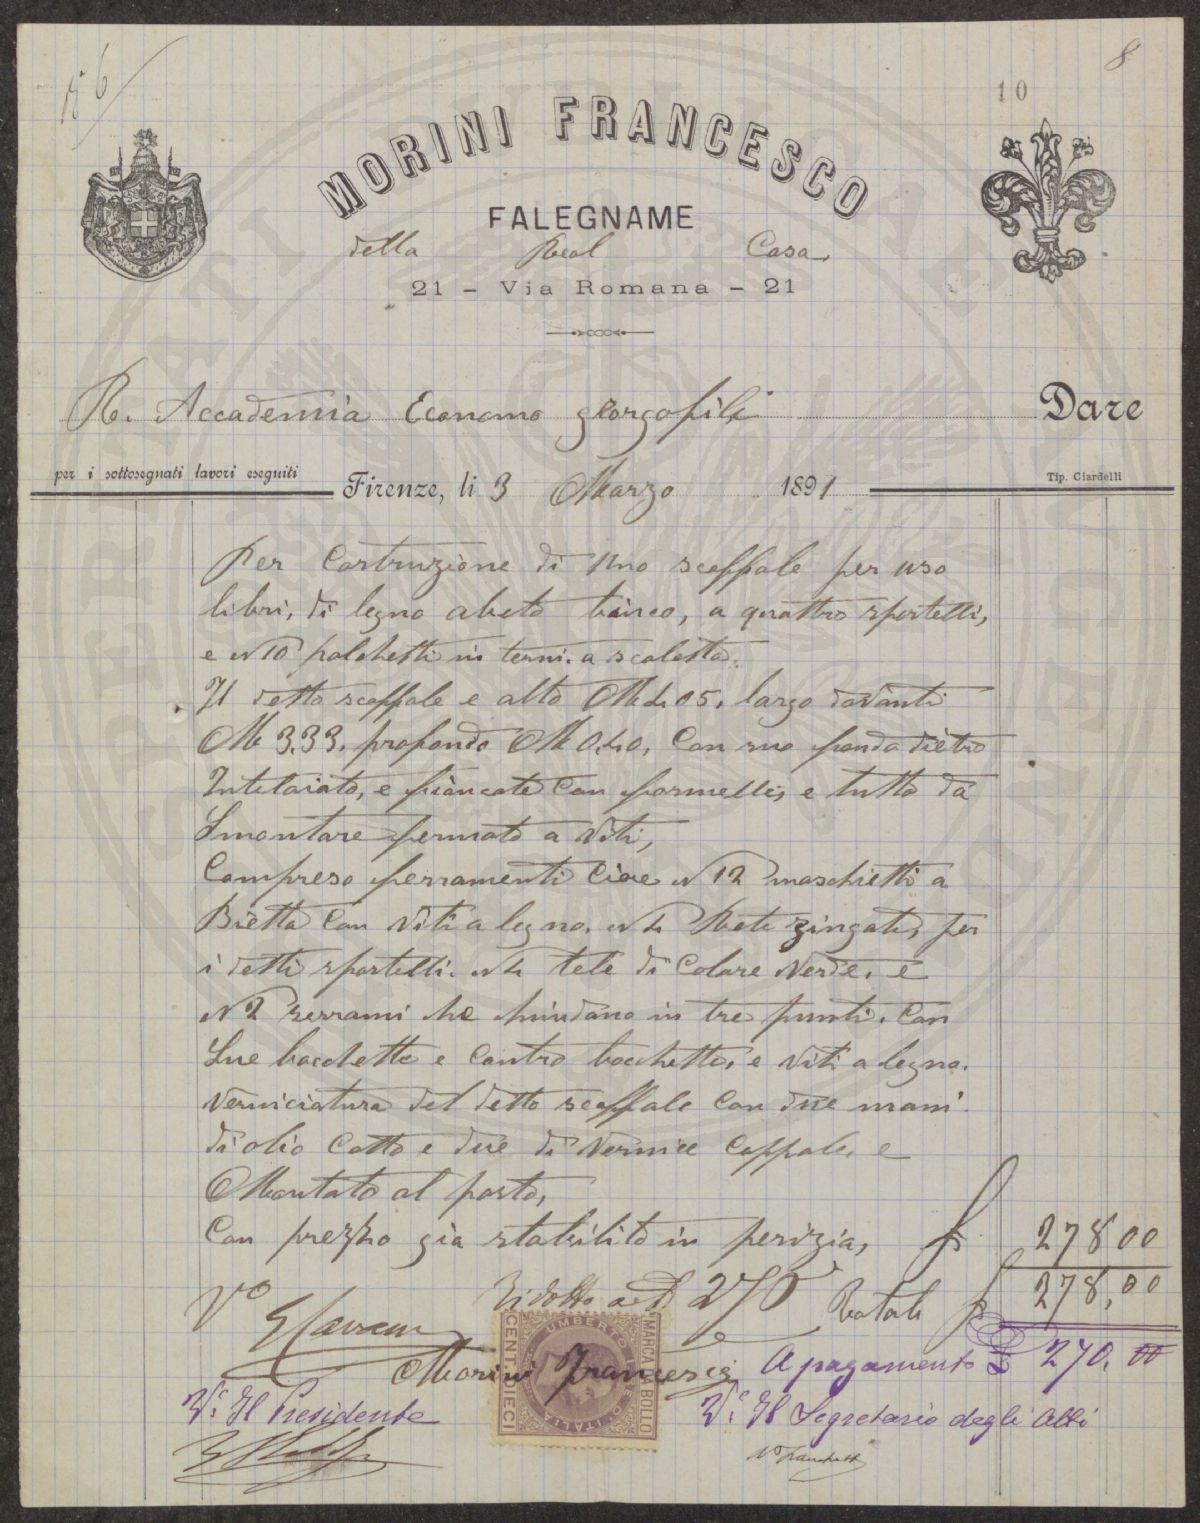 8
10
MORINI FRANCESCO
FALEGNAME
della Real Casa,
21 - Via Romana - 21
R. Accademia Economo georgofili Dare
per i sottosegnati lavori eseguiti
Firenze, li 3 Marzo 1891
Tip. Ciardelli
Per Costruzione di Uno scaffale per uso
libri, di legno abeto bianco, a quattro sportelli,
e N 10 palchetti in terni a scaletta.
Il detto scaffale e alto M 4.05. largo davanti
M 3.33. profondo M 0.40, Con suo fondo dietro
Intelaiato, e fiancate Con formelle, e tutto da
Smontare fermato a Viti,
Compreso ferramenti Cioe N 12 maschietti a
Bietta Con Viti a legno. N 4 Rete zingate, per
i detti sportelli. N 4 tele di Colore Verde. e
N 2 serrami che chiudano in tre punti. Con
Sue bocchette e Contro bocchette, e Viti a legno.
Verniciatura del detto scaffale Con due mani
di olio Cotto e due di Vernice Coppale. e
Montato al posto,
Con prezzo gia stabilito in perizia, £ 278 00
Ridotto a £ 270 Totale £ 278,00
V°
MARCA DA BOLLO
UMBERTO I RE D'ITALIA
CENT. DIECI
Morini Francesco
A pagamento £ 270. 00
V° Il Presidente
V° Il Segretario degli Atti